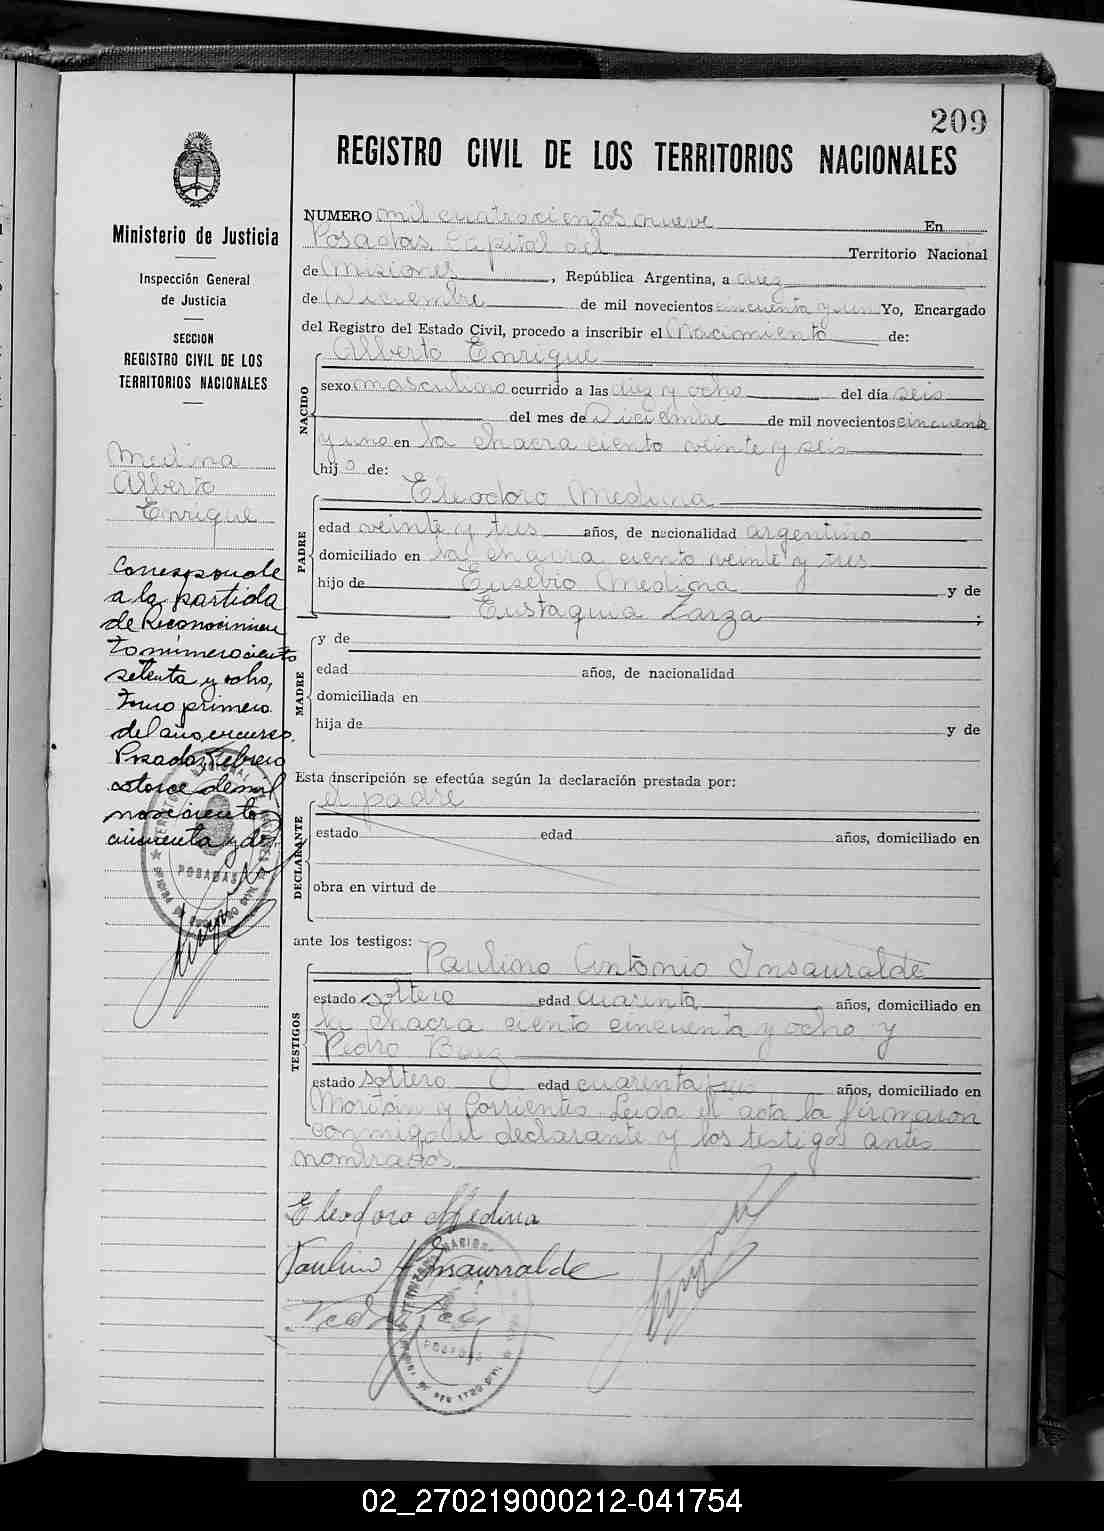 209
REGISTRO CIVIL DE LOS TERRITORIOS NACIONALES
Ministerio de Justicia
Inspección General
de Justicia
SECCION
REGISTRO CIVIL DE LOS
TERRITORIOS NACIONALES
Medina
Alberto
Enrique
Corresponde
a la partida
de Reconocimien
to número ciento
setenta y ocho,
tomo primero
del año en curso.
Posadas, Febrero
catorce de mil
novecientos
cincuenta y dos
POSADAS
NUMERO mil cuatrocientos nueve En
Posadas Capital del Territorio Nacional
de Misiones, República Argentina, a diez
de Diciembre de mil novecientos cincuenta y un Yo, Encargado
del Registro del Estado Civil, procedo a inscribir el Nacimiento de:
NACIDO
Alberto Enrique
sexo masculino ocurrido a las diez y ocho del día seis
del mes de Diciembre de mil novecientos cincuenta
y uno en la chacra ciento veinte y seis
hijo de:
PADRE
Eleodoro Medina
edad veinte y tres años, de nacionalidad argentino
domiciliado en la chacra ciento veinte y tres
hijo de Eusebio Medina y de
Eustaquia Zarza ;
MADRE
y de
edad años, de nacionalidad
domiciliada en
hija de y de
Esta inscripción se efectúa según la declaración prestada por:
DECLARANTE
el padre
estado edad años, domiciliado en
obra en virtud de
ante los testigos:
TESTIGOS
Paulino Antonio Insauralde
estado soltero edad cuarenta años, domiciliado en
la chacra ciento cincuenta y ocho y
Pedro Baez
estado soltero edad cuarenta años, domiciliado en
y Corrientes Leida el acta la firmaron
conmigo el declarante y los testigos antes
nombrados
Eleodoro Medina
Paulino A Insaurralde
POSADAS
02_270219000212-041754